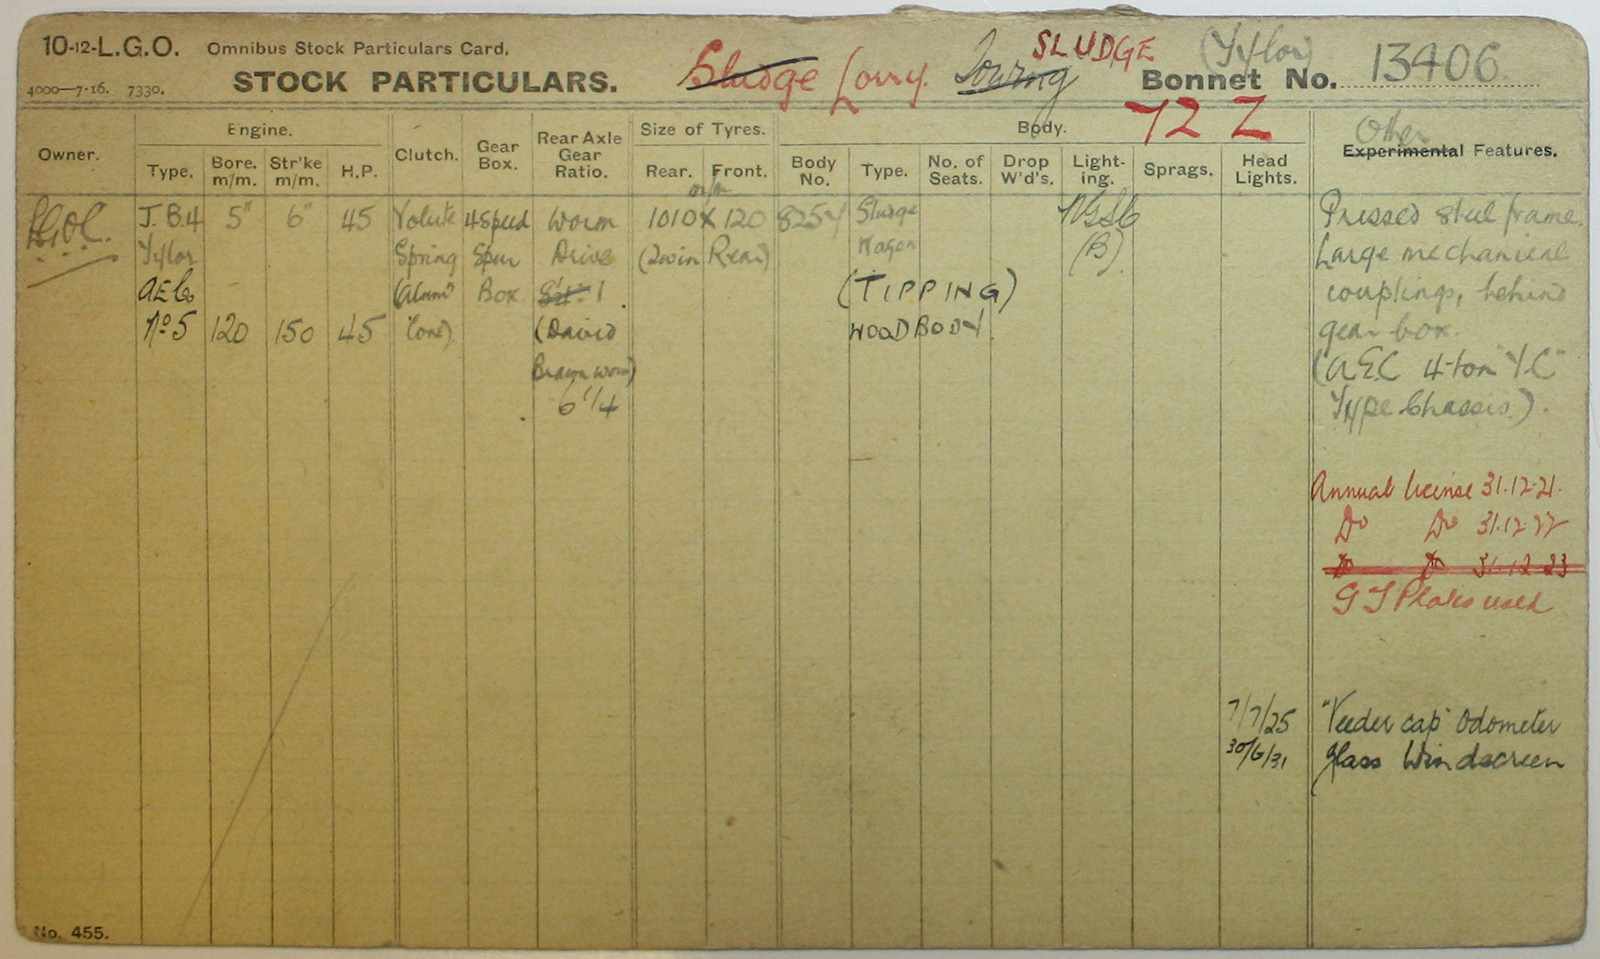 10-12-L.G.O. Omnibus Stock Particulars Card.
4000—7·16. 7330. STOCK PARTICULARS.
Sludge Lorry. Touring SLUDGE (Tylor)
Bonnet No. 13406
72 Z
Owner. Engine. Clutch. Gear Box. Rear Axle Gear Ratio. Size of Tyres. Body. Other Experimental Features.
Type. Bore. m/m. Str'ke m/m. H.P. Rear. Front. Body No. Type. No. of Seats. Drop W'd's. Light-ing. Sprags. Head Lights.
m/m
L.G.O.C. J.B.4 5" 6" 45 Volute 4 Speed Worm 1010 X 120 8254 Sludge Pressed steel frame.
Tylor Spring Spur Drive (Twin Rear) Wagon (B) Large mechanical
AEC (Alumm Box 1 (TIPPING) couplings, behind
No 5 120 150 45 Cone). (David WOOD BODY. gear box.
Brown worm) (A.E.C 4-ton "Y.C"
6 1/4 Type Chassis).
Annual License 31.12.21.
Do Do 31.12.22
Do Do 31.12.23
G T Plates used
7/7/25 "Veeder cap" Odometer
30/6/31 Glass Windscreen
No. 455.